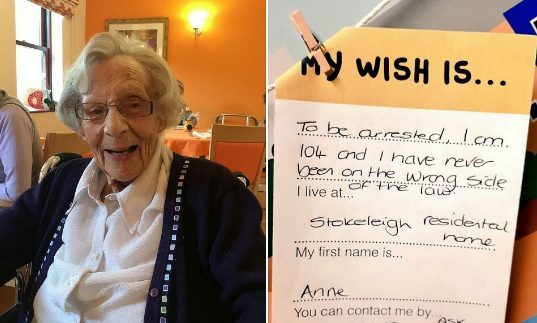 MY WISH IS...
To be arrested, I am
104 and I have never
been on the wrong side
of the law.
I live at...
Stokeleigh residental
home
My first name is...
Anne
You can contact me by...
ASK